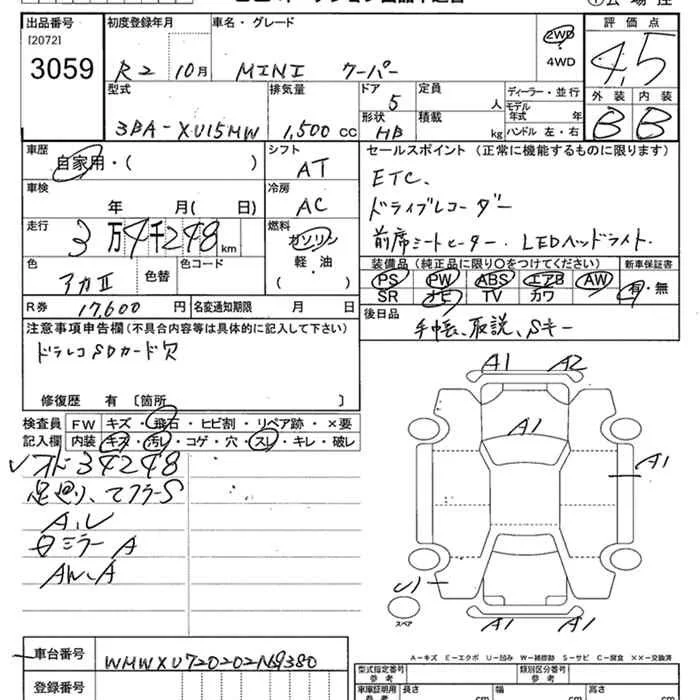 出品番号 初度登録年月 車名・グレード 2WD 評価点
[2072]
3059 R2 10月 MINI クーパー 4WD 4,5
型式 排気量 ドア 5 定員 人 ディーラー・並行 外装 内装
モデル年式 年
3BA-XU15MW 1,500 cc 形状 HB 積載 kg ハンドル 左・右 B B
車歴 シフト セールスポイント (正常に機能するものに限ります)
自家用・( ) AT ETC、
車検 冷房 ドライブレコーダー
年 月( 日) AC 前席シートヒーター、LEDヘッドライト、
走行 3万4千248km 燃料 ガソリン 軽・油 ( )
装備品(純正品に限り○をつけてください) 新車保証書
PS PW ABS エアB AW 有・無
SR ナビ TV カワ
色 アカII 色替 色コード
R券 17,600円 名変通知期限 月 日
後日品 手帳、取説、Sキー
注意事項申告欄(不具合内容等は具体的に記入して下さい)
ドラレコSDカード欠
修復歴 有 〔箇所 〕
検査員 FW キズ・飛石・ヒビ割・リペア跡・×要
記入欄 内装 キズ・汚レ・コゲ・穴・スレ・キレ・破レ
34248
足廻り、マフラーS
A、U
ミラーA
AW、A
A1 A2
A1
A1
U1
スペア
A1 A1
A－キズ E－エクボ U－凹み W－補修跡 S－サビ C－腐食 ××－交換済
車台番号 WMWXU720202N69380
登録番号
型式指定番号 参考 類別区分番号 参考
車庫証明用 参考 長さ cm 幅 cm 高さ cm